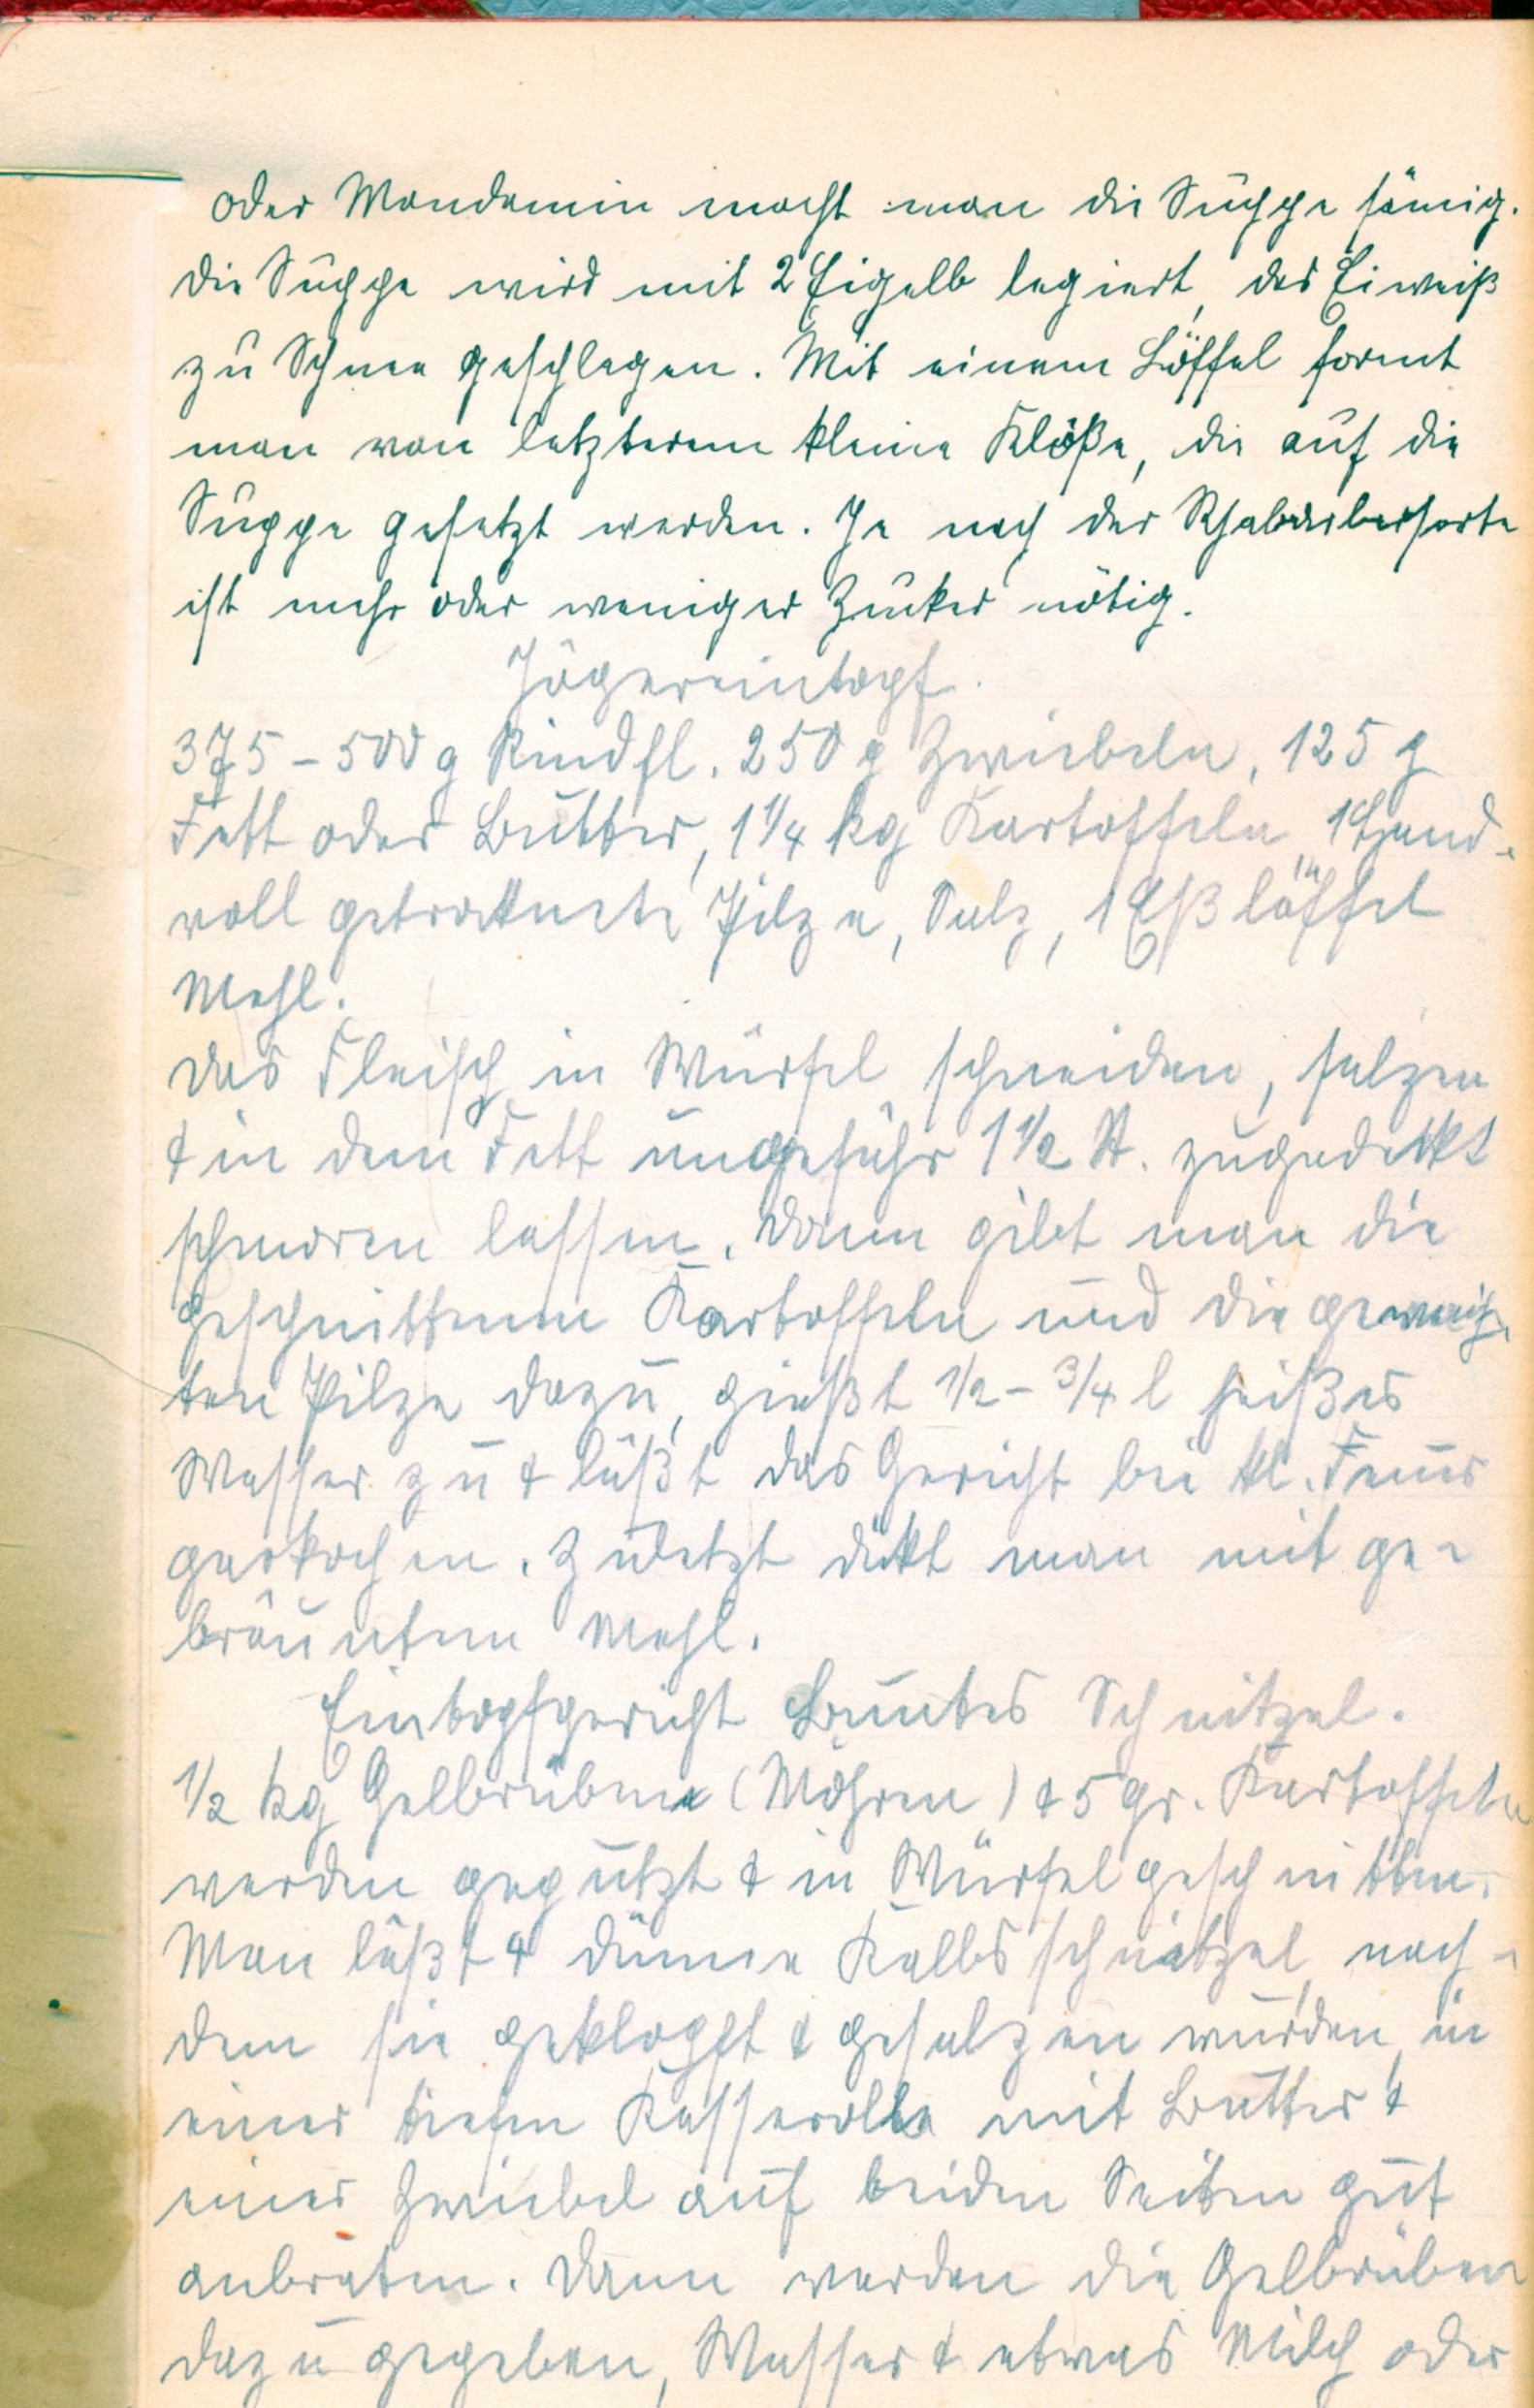 oder Mondamin macht man die Suppe sämig.
Die Suppe wird mit 2 Eigelb legiert, das Eiweiß
zu Schnee geschlagen. Mit einem Löffel formt
man von letzterem kleine Klöße, die auf die
Suppe gesetzt werden. Je nach der Rhabarbersorte
ist mehr oder weniger Zucker nötig.
Jägereintopf.
375 - 500 g Rindfl. 250 g Zwiebeln, 125 g
Fett oder Butter, 1 1/4 kg Kartoffeln, 1 Hand-
voll getrocknete Pilze, Salz, 1 Eßlöffel
Mehl.
Das Fleisch in Würfel schneiden, salzen
& in dem Fett ungefähr 1 1/2 St. zugedeckt
schmoren lassen. Dann gibt man die
geschnittenen Kartoffeln und die geweich-
ten Pilze dazu, gießt 1/2 - 3/4 l heißes
Wasser zu & läßt das Gericht bei kl. Feuer
garkochen. Zuletzt dickt man mit ge-
bräuntem Mehl.
Eintopfgericht Buntes Schnitzel.
1/2 kg Gelbrüben (Möhren) & 5 gr. Kartoffeln
werden geputzt & in Würfel geschnitten.
Man läßt 4 dünne Kalbsschnitzel, nach-
dem sie geklopft & gesalzen wurden, in
einer tiefen Kasserolle mit Butter &
einer Zwiebel auf beiden Seiten gut
anbraten. Dann werden die Gelbrüben
dazu gegeben, Wasser & etwas Milch oder